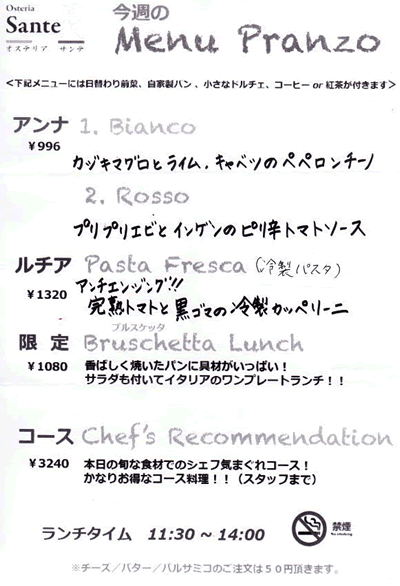 Osteria
Sante
オステリア サンテ
今週の
Menu Pranzo
＜下記メニューには日替わり前菜、自家製パン、小さなドルチェ、コーヒー or 紅茶が付きます＞
アンナ 1. Bianco
￥996
カジキマグロとライム、キャベツのペペロンチーノ
2. Rosso
プリプリエビとインゲンのピリ辛トマトソース
ルチア Pasta Fresca (冷製パスタ)
￥1320 アンチエンジング!!
完熟トマトと黒ゴマの冷製カッペリーニ
ブルスケッタ
限定 Bruschetta Lunch
￥1080 香ばしく焼いたパンに具材がいっぱい！
サラダも付いてイタリアのワンプレートランチ！！
コース Chef's Recommendation
￥3240 本日の旬な食材でのシェフ気まぐれコース！
かなりお得なコース料理！！（スタッフまで）
ランチタイム 11:30 ~ 14:00 禁煙
No smoking
※チーズ／バター／バルサミコのご注文は５０円頂きます。